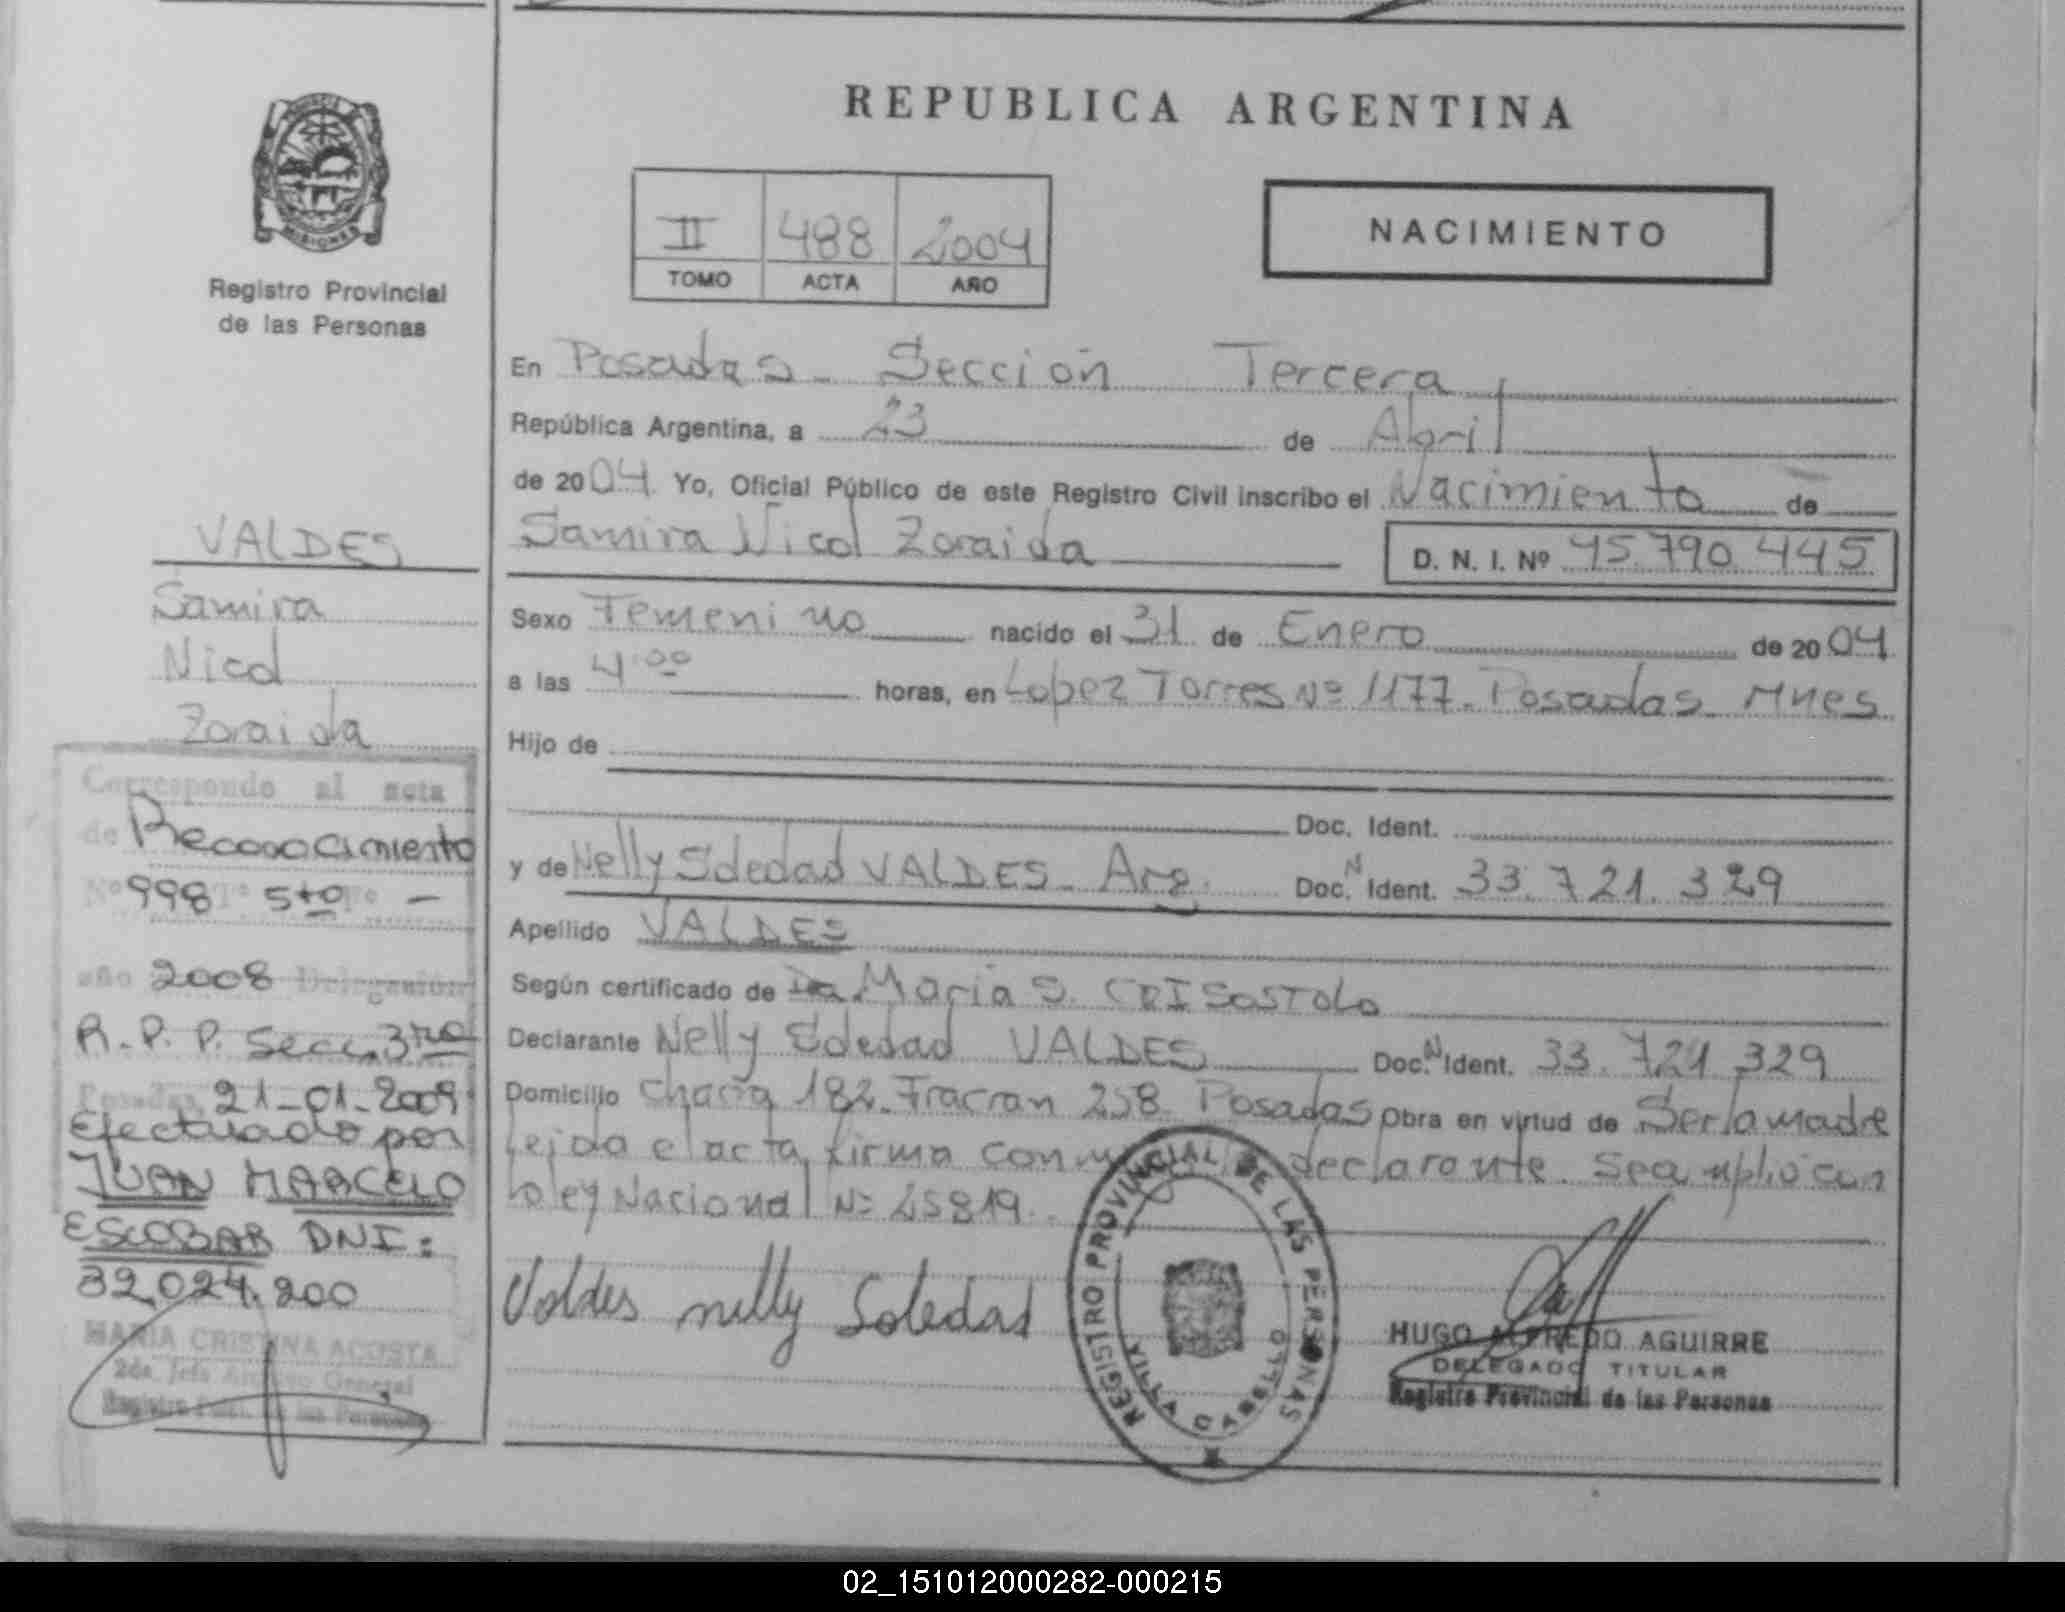 REPUBLICA ARGENTINA
MISIONES
Registro Provincial
de las Personas
II 488 2004
TOMO ACTA AÑO
NACIMIENTO
En Posadas - Sección Tercera
República Argentina, a 23 de Abril
de 2004 Yo, Oficial Público de este Registro Civil inscribo el Nacimiento de
Samira Nicol Zoraida D. N. I. Nº 45.790.445
Sexo Femenino nacido el 31 de Enero de 2004
a las 4.00 horas, en Lopez Torres Nº 1177. Posadas Mnes
Hijo de
Doc. Ident.
y de Nelly Soledad VALDES - Arg. Doc. N Ident. 33.721.329
Apellido VALDES
Según certificado de Maria S. CRISOSTOLO
Declarante Nelly Soledad VALDES Doc. N Ident. 33.721.329
Domicilio Chacra 182. Fracran 258. Posadas Obra en virtud de Ser la madre
Leida el acta, firma declarante. Se cumplió con
la ley Nacional Nº 25819.
Valdes nelly Soledad
REGISTRO PROVINCIAL DE LAS PERSONAS
VILLA CABELLO
HUGO ALFREDO AGUIRRE
DELEGADO TITULAR
Registro Provincial de las Personas
VALDES
Samira
Nicol
Zoraida
Corresponde al acta
de Reconocimiento
Nº 998 Tº 5to Fº -
año 2008 Delegación
R.P.P. Secc. 3ra
Posadas, 21-01-2009
Efectuado por
JUAN MARCELO
ESCOBAR DNI:
32.024.200
MARIA CRISTINA ACOSTA
2da. Jefa Archivo General
Registro Provl. de las Personas
02_151012000282-000215